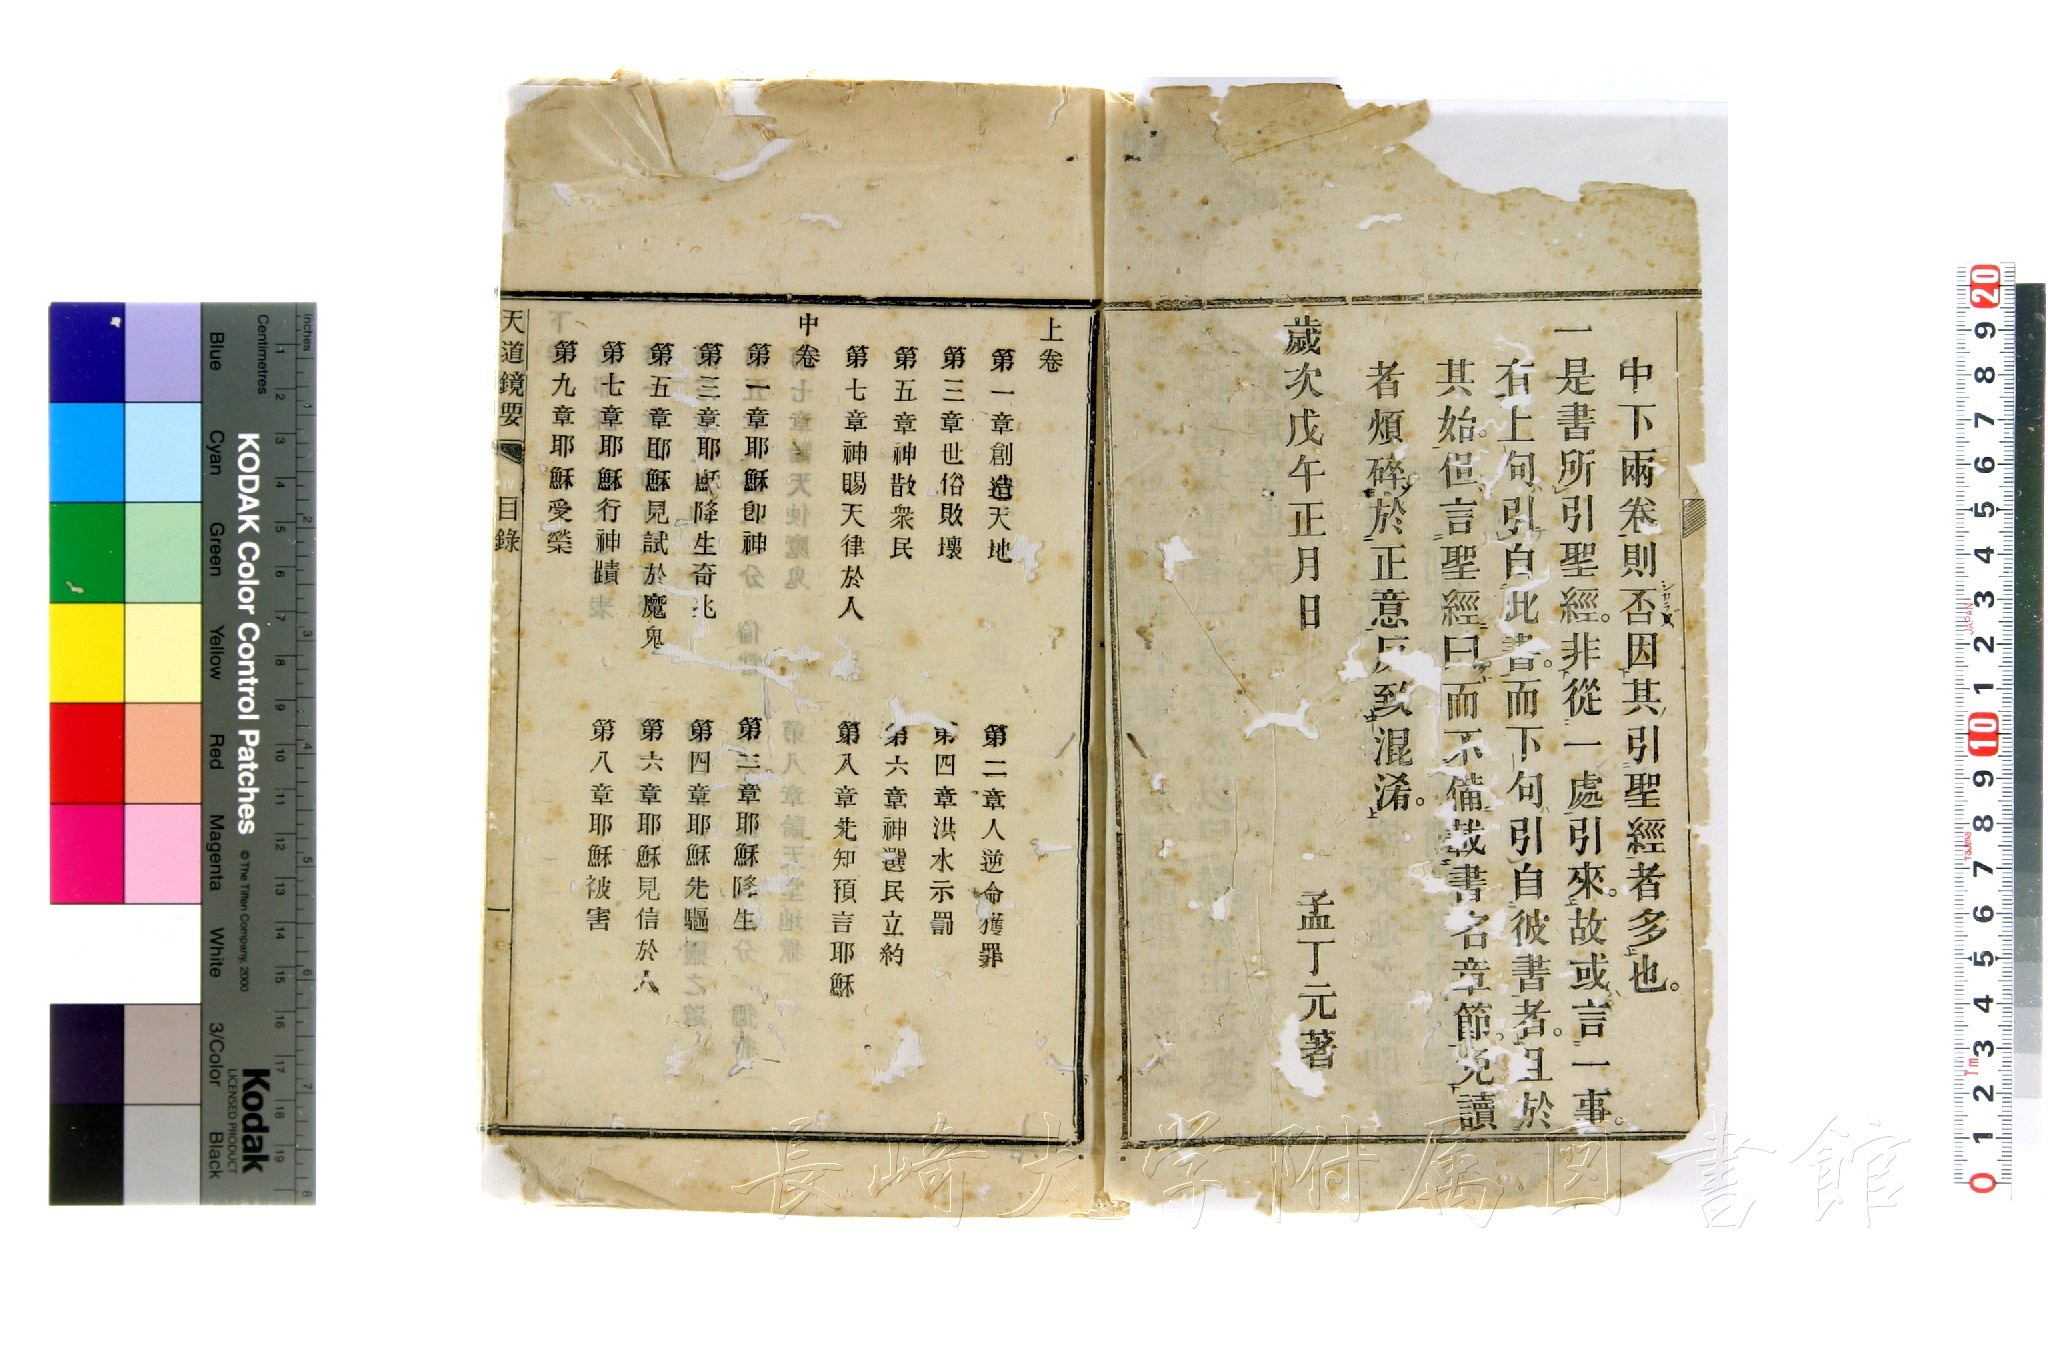 中下兩卷則否因其引聖經者多也。
一是書所引聖經。非從一處引來。故或言一事。
有上句引自此書。而下句引自彼書者。且於
其始。但言聖經曰。而不備載書名章節。免讀
者煩碎。於正意反致混淆。
歲次戊午正月日
孟丁元著
上卷
第一章創造天地
第二章人逆命獲罪
第三章世俗敗壞
第四章洪水示罰
第五章神散衆民
第六章神選民立約
第七章神賜天律於人
第八章先知預言耶穌
中卷
第一章耶穌卽神
第二章耶穌降生
第三章耶穌降生奇兆
第四章耶穌先驅
第五章耶穌見試於魔鬼
第六章耶穌見信於人
第七章耶穌行神蹟
第八章耶穌被害
第九章耶穌受榮
天道鏡要
目錄
一
長崎大学附属図書館
KODAK Color Control Patches
© The Tiffen Company, 2000
Kodak
LICENSED PRODUCT
Inches
Centimetres
Blue
Cyan
Green
Yellow
Red
Magenta
White
3/Color
Black
JAPAN